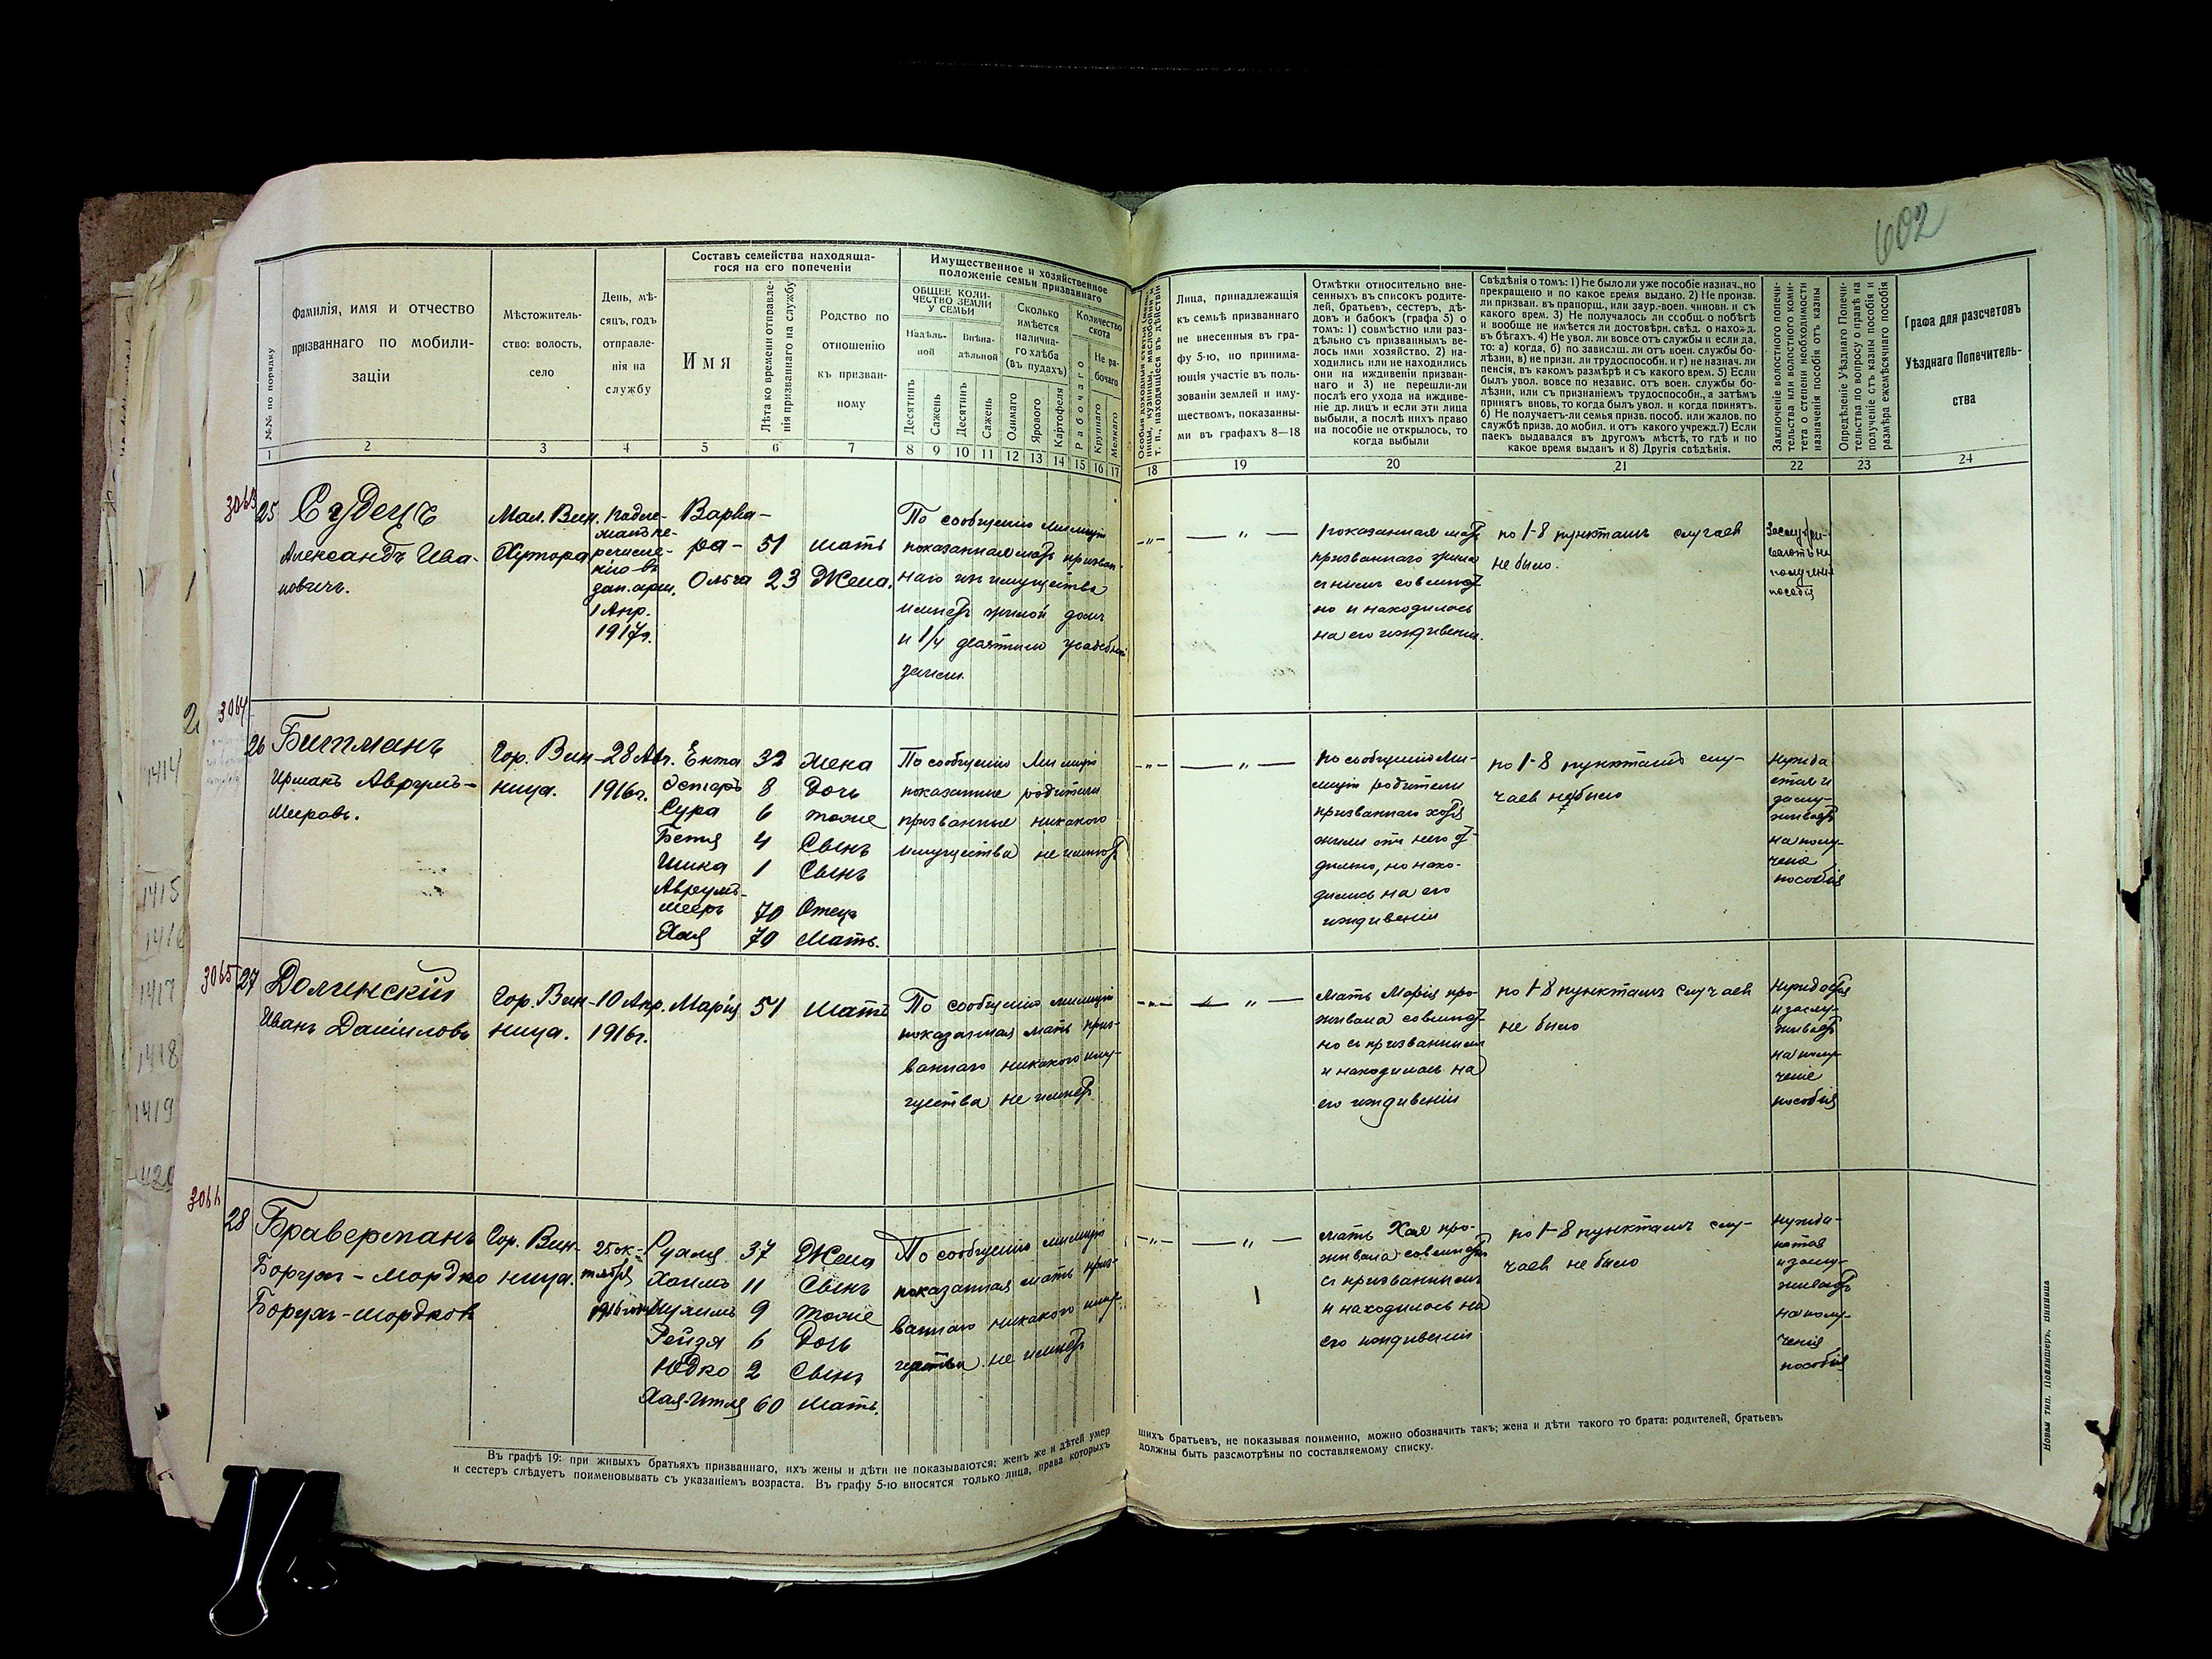 602
Составъ семейства находяща-
гося на его попеченіи
Имущественное и хозяйственное
положеніе семьи призваннаго
№№ по порядку
Фамилія, имя и отчество
призваннаго по мобили-
заціи
Мѣстожитель-
ство: волость,
село
День, мѣ-
сяцъ, годъ
отправле-
нія на
службу
Имя
Лѣта ко времени отправле-
нія призваннаго на службу
Родство по
отношенію
къ призван-
ному
ОБЩЕЕ КОЛИ-
ЧЕСТВО ЗЕМЛИ
У СЕМЬИ
Надѣль-
ной
Внѣна-
дѣльной
Десятинъ
Сажень
Десятинъ
Сажень
Сколько
имѣется
налична-
го хлѣба
(въ пудахъ)
Озимаго
Ярового
Картофеля
Количество
скота
Рабочаго
Не ра-
бочаго
Крупнаго
Мелкаго
Лица, принадлежащія
къ семьѣ призваннаго
не внесенныя въ гра-
фу 5-ю, но принима-
ющія участіе въ поль-
зованіи землей и иму-
ществомъ, показанны-
ми въ графахъ 8—18
Отмѣтки относительно вне-
сенныхъ въ списокъ родите-
лей, братьевъ, сестеръ, дѣ-
довъ и бабокъ (графа 5) о
томъ: 1) совмѣстно или раз-
дѣльно съ призваннымъ ве-
лось ими хозяйство. 2) на-
ходились или не находились
они на иждивеніи призван-
наго и 3) не перешли-ли
послѣ его ухода на иждиве-
ніе др. лицъ и если эти лица
выбыли, а послѣ нихъ право
на пособіе не открылось, то
когда выбыли
Свѣдѣнія о томъ: 1) Не было ли уже пособіе назнач., но
прекращено и по какое время выдано. 2) Не произв.
ли призван. въ прапорщ., или заур.-воен. чиновн. и съ
какого врем. 3) Не получалось ли сообщ. о побѣгѣ
и вообще не имѣется ли достовѣрн. свѣд. о нахожд.
въ бѣгахъ. 4) Не увол. ли вовсе отъ службы и если да,
то: а) когда, б) по зависящ. ли отъ воен. службы бо-
лѣзни, в) не призн. ли трудоспособн. и г) не назнач. ли
пенсія, въ какомъ размѣрѣ и съ какого врем. 5) Если
былъ увол. вовсе по независ. отъ воен. службы бо-
лѣзни, или съ признаніемъ трудоспособн., а затѣмъ
принятъ вновь, то когда былъ увол. и когда принятъ.
6) Не получаетъ-ли семья призв. пособ. или жалов. по
службѣ призв. до мобил. и отъ какого учрежд. 7) Если
паекъ выдавался въ другомъ мѣстѣ, то гдѣ и по
какое время выданъ и 8) Другія свѣдѣнія.
Заключеніе волостного попечи-
тельства или волостного коми-
тета о степени необходимости
назначенія пособія отъ казны
Опредѣленіе Уѣзднаго Попечи-
тельства по вопросу о правѣ на
полученіе съ казны пособія и
размѣра ежемѣсячнаго пособія
Графа для разсчетовъ
Уѣзднаго Попечитель-
ства
1 2 3 4 5 6 7 8 9 10 11 12 13 14 15 16 17 18 19 20 21 22 23 24
25
Александъ Ива-
новичъ.
Мал. Вин.
Хутора
1 Апр.
1917г.
Варва-
ра - 51 мать
Ольга 23 Жена.
По сообщенію милиціи
показанная мать призван-
наго изъ имущества
имѣетъ жилой домъ
и 1/4 десятины усадебной
земли.
показанная мать
призваннаго жила
съ нимъ совмѣст-
но и находилась
на его иждивеніи.
по 1-8 пунктамъ случаевъ
не было.
3064
26
Битманъ
Ирманъ Аврумъ-
Мееровъ.
Гор. Вин-
ница.
28 Авг.
1916г.
Ента 32 жена
Эстеръ 8 Дочь
Сура 6 тоже
Бетя 4 Сынъ
Шика 1 Сынъ
Аврумъ-
Мееръ 70 Отецъ
Хая 70 Мать.
По сообщенію Милиціи
показанные родители
призванные никакого
имущества не имѣютъ
по сообщенію Ми-
лиціи родители
призваннаго хотя
жили отъ него от-
дѣльно, но нахо-
дились на его
иждивеніи
по 1-8 пунктамъ слу-
чаев не было
3065
27
Долинскій
Иванъ Даниловъ
Гор. Вин-
ница.
10 Апр.
1916г.
Марія 51 Мать
По сообщенію милиціи
показанная мать приз-
ваннаго никакого иму-
щества не имѣетъ.
Мать Марія про-
живала совмѣст-
но съ призваннымъ
и находилась на
его иждивеніи
по 1-8 пунктамъ случаев
не было
Нуждается
и заслу-
живаетъ
на полу-
ченіе
пособія
3066
28
Браверманъ
Борухъ - Мордко
Борухъ-Мордков
Гор. Вин-
ница.
25 ок-
тября
Рухля 37 Жена
Хаимъ 11 Сынъ
9 тоже
Рейзя 6 Дочь
Юдко 2 Сынъ
Хая-Итля 60 Мать.
По сообщенію милиціи
показанная мать приз-
ваннаго никакого иму-
щества не имѣетъ
Мать Хая про-
живала совмѣстно
съ призваннымъ
и находилась на
его иждивеніи
по 1-8 пунктамъ слу-
чаев не было
Въ графѣ 19: при живыхъ братьяхъ призваннаго, ихъ жены и дѣти не показываются; женъ же и дѣтей умер
шихъ братьевъ, не показывая поименно, можно обозначить такъ; жена и дѣти такого то брата: родителей, братьевъ
и сестеръ слѣдуетъ поименовывать съ указаніемъ возраста. Въ графу 5-ю вносятся только лица, права которыхъ
должны быть разсмотрѣны по составляемому списку.
1414
1415
1416
1417
1418
1419